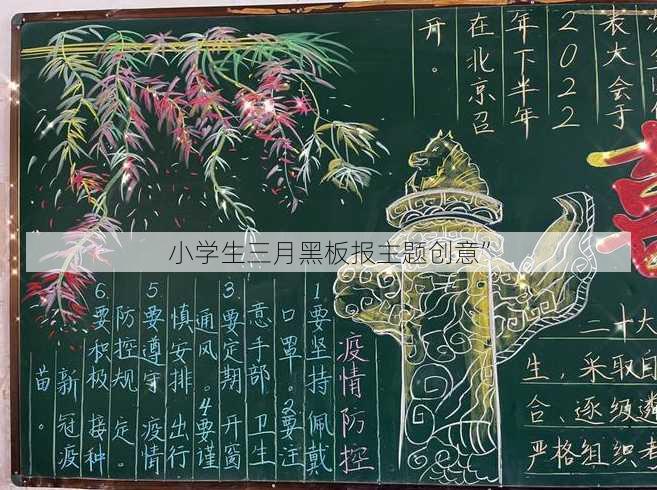 表大会于
2022
年下半年
在北京召
开。
小学生三月黑板报主题创意”
二十大
生，采取自
合、逐级遴
严格组织考
疫情防控
1.要坚持佩戴
口罩。2.要注
意手部卫生
3.要定期开窗
通风。4.要谨
慎安排出行
5.要遵守疫情
防控规定。
6.要积极接种
新冠疫
苗。